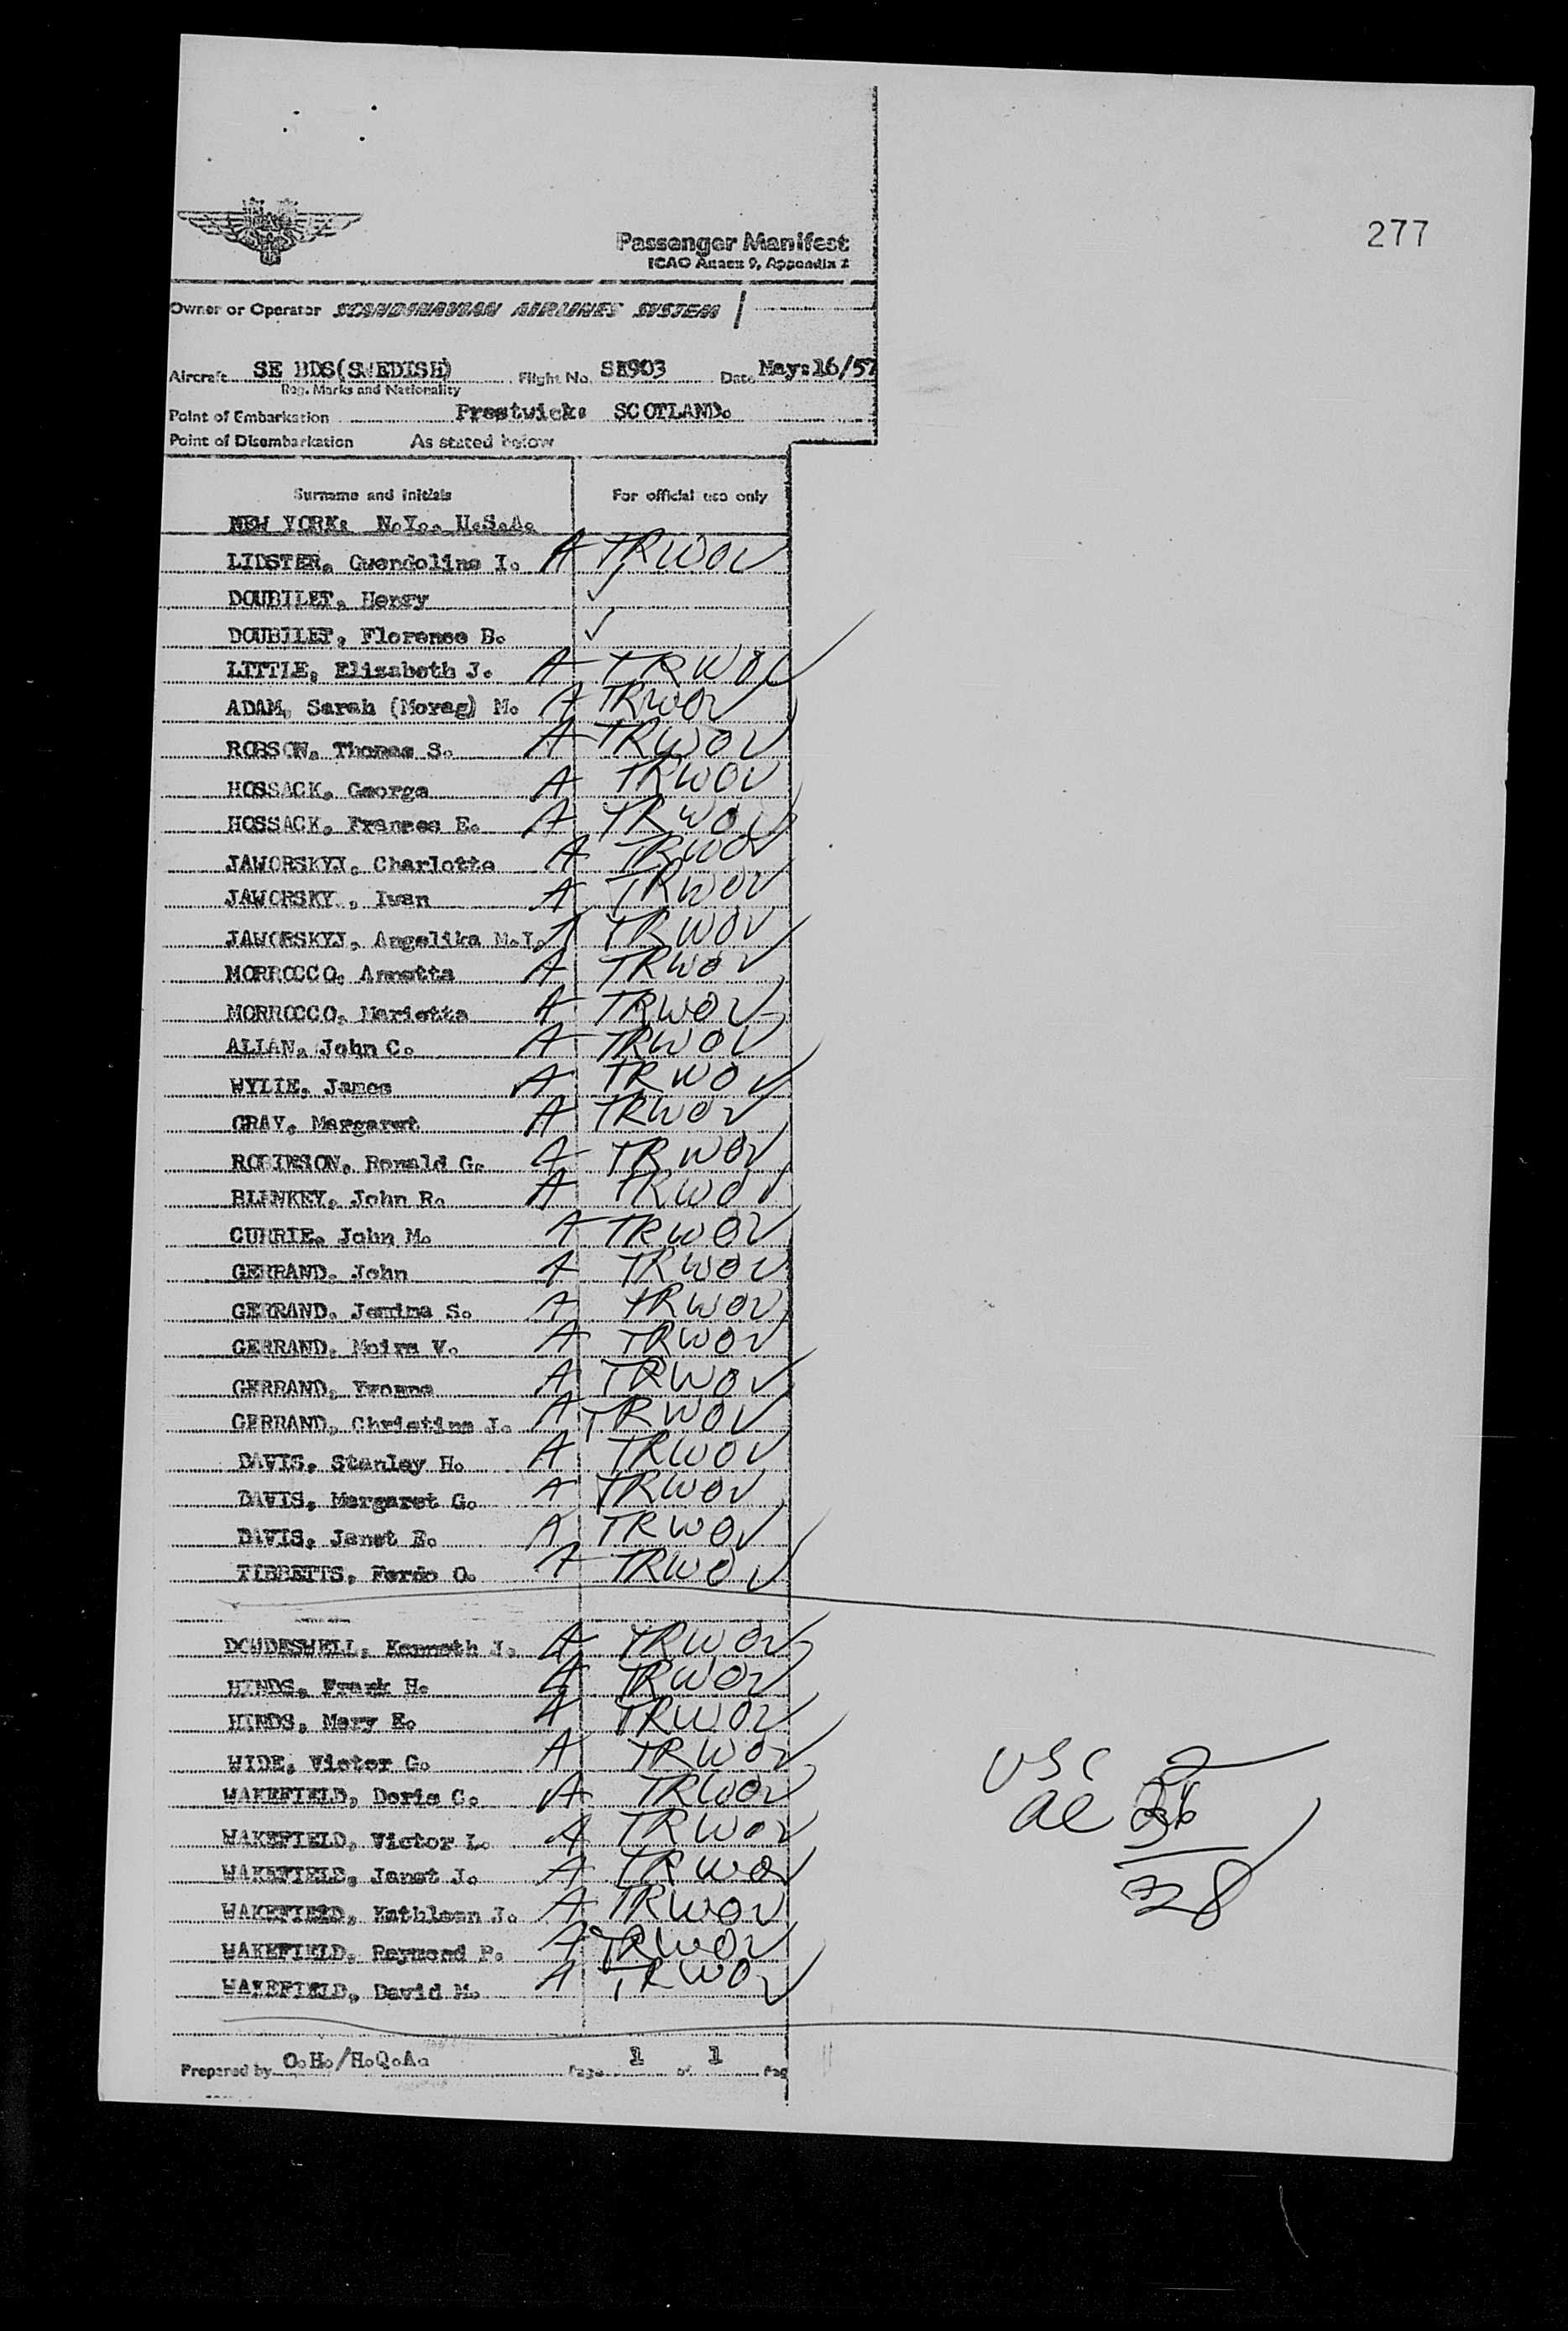 277
Passenger Manifest
ICAO Annex 9, Appendix 2
Owner or Operator SCANDINAVIAN AIRLINES SYSTEM
Aircraft SE BDS(SWEDISH) Flight No. SK903 Date May:16/57
Reg. Marks and Nationality
Point of Embarkation Prestwick: SCOTLAND.
Point of Disembarkation As stated below
Surname and initials For official use only
NEW YORK: N.Y.. U.S.A.
LIDSTER, Gwendoline I. A TRWOV
DOUBILET, Henry ✓
DOUBILET, Florence B. ✓
LITTLE, Elizabeth J. A TRWOV
ADAM, Sarah (Morag) M. A TRWOV
ROBSON, Thomas S. A TRWOV
HOSSACK, George A TRWOV
HOSSACK, Frances E. A TRWOV
JAWORSKYJ, Charlotte A TRWOV
JAWORSKY , Iwan A TRWOV
JAWORSKYJ, Angelika M.I. A TRWOV
MORROCCO, Annetta A TRWOV
MORROCCO, Marietta A TRWOV
ALLAN, John C. A TRWOV
WYLIE, James A TRWOV
GRAY, Margaret A TRWOV
ROBINSON, Ronald G. A TRWOV
BLENKEY, John R. A TRWOV
CURRIE, John M. A TRWOV
GERRAND, John A TRWOV
GERRAND, Jemima S. A TRWOV
GERRAND, Moira V. A TRWOV
GERRAND, Yvonne A TRWOV
GERRAND, Christina J. A TRWOV
DAVIS, Stanley H. A TRWOV
DAVIS, Margaret G. A TRWOV
DAVIS, Janet E. A TRWOV
TIBBETTS, O. A TRWOV
DOWDESWELL, Kenneth J. A TRWOV
HINDS, Frank H. A TRWOV
HINDS, Mary E. A TRWOV
WIDE, Victor G. A TRWOV
WAKEFIELD, Doris C. A TRWOV
WAKEFIELD, Victor L. A TRWOV
WAKEFIELD, Janet J. A TRWOV
WAKEFIELD, Kathleen J. A TRWOV
WAKEFIELD, Raymond P. A TRWOV
WAKEFIELD, David M. A TRWOV
USC 2
al 36
38
Prepared by O.H./H.Q.A. Page 1 of 1 Pag